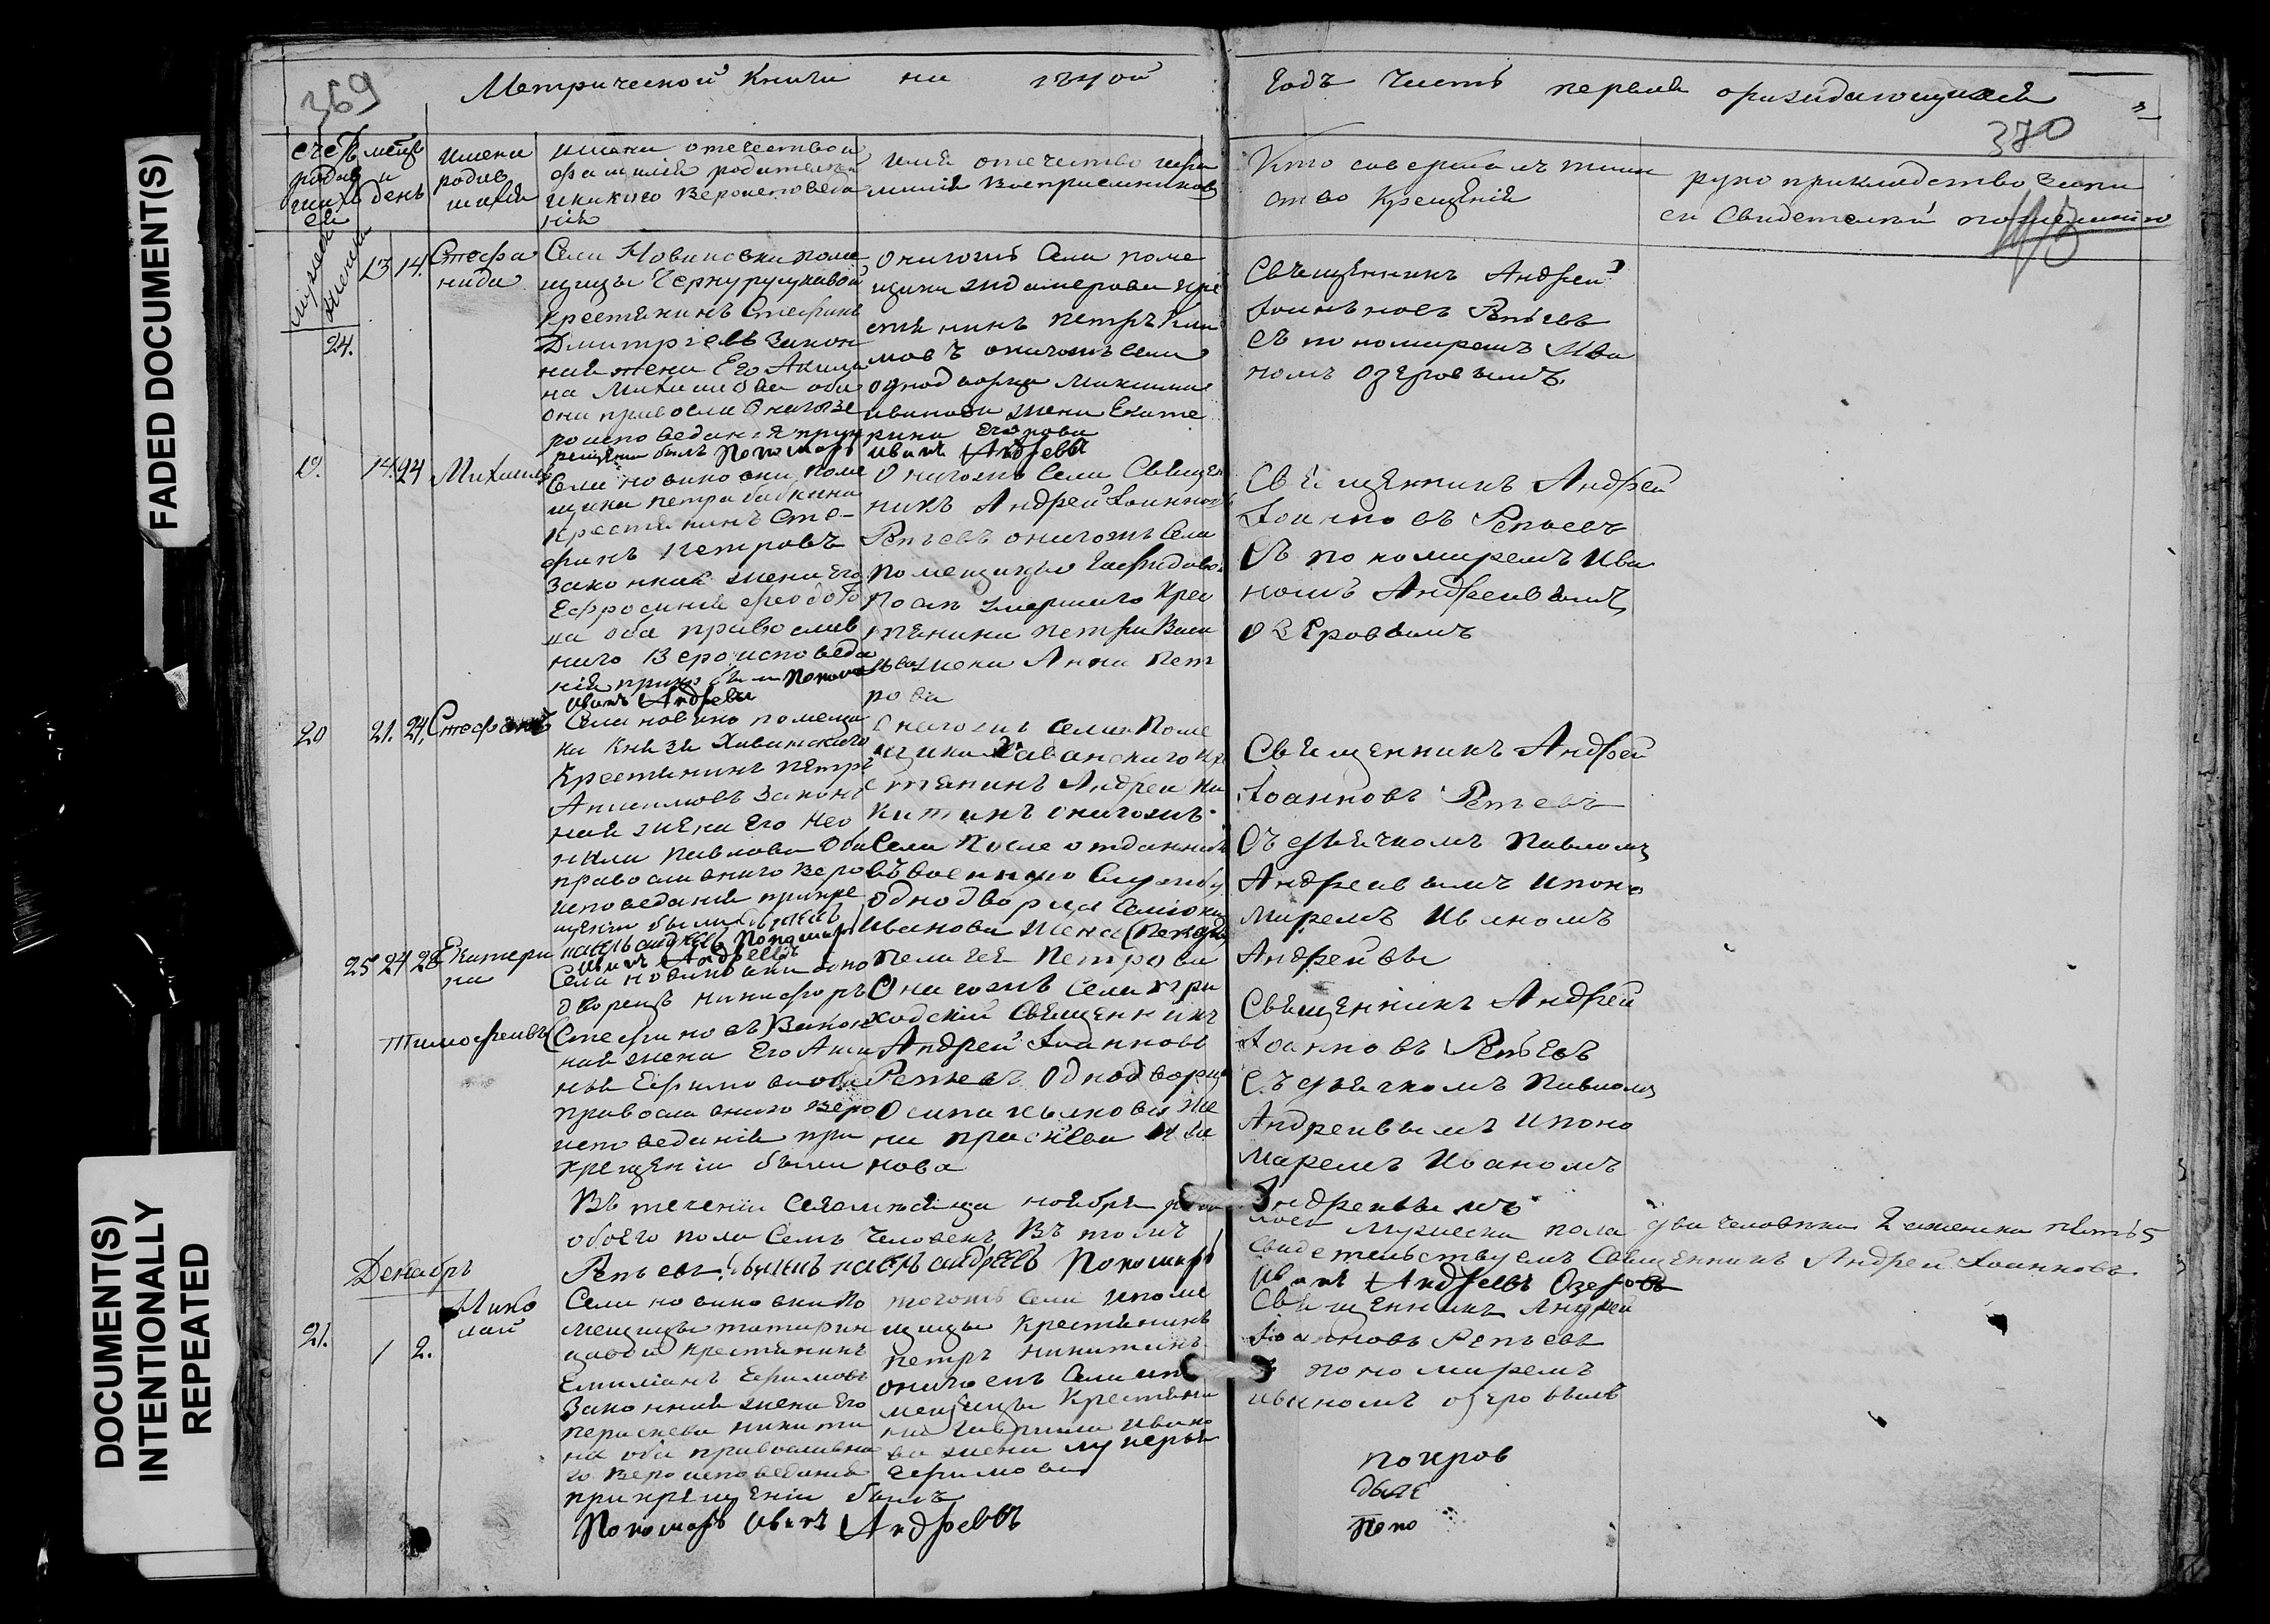 FADED DOCUMENT(S)
DOCUMENT(S)
INTENTIONALLY
REPEATED
369
Метрической Книги на
годъ Часть первая
370
счетъ
родив
шихся
мужеска
женска
месц
и
день
имена
родив
шихся
имена отечество и
фамилія родителей
и какого Вероисповеда
нія
имя отечество и фа
милія Воспріемниковъ
Кто совершалъ таин
ство Крещенія
руко прикладство запи
си Свидетелей по желанію
24.
13 14.
Стефа
нида
Села Новиковки поме
щицы
крестьянинъ Стефанъ
Дмитріевъ Закон
ная жена Его Акили
на Михайлова оба
они православнаго Ве
роисповеданія при к
рещеніи былъ Пономарь Иванъ Андреевъ
Онагожъ Села поме
щика кре
стьянинъ Петръ
мовъ онагожъ Села
однодворца Максима
иванова жена Екате
рина
Священникъ Андрей
Іоанновъ Репьевъ
съ пономаремъ Ива
номъ Озеровымъ
19. 14. 24
Михаилъ
Села новиковки поме
щика петра бабкина
Крестьянинъ Сте-
фанъ Петровъ
Законная жена Его
Ефросинія Феодото
ва оба православ
наго Вероисповеда
нія при Понома
Иванъ Андреевъ
Онагожъ Села Священ
никъ Андрей Іоанновъ
Репьевъ онагожъ Села
помещицы
После умершаго Кре
стьянина петра Васи
льева жена Анна Пет
рова
Священникъ Андрей
Іоанновъ Репьевъ
Съ пономаремъ Ива
номъ Андреевымъ
Озеровымъ
20 21. 24.
Стефанъ
Села новико помещи
ка Князя Хованскаго
Крестьянинъ петръ
Анисимовъ Закон
ная жена Его Нео
нила павлова Оба
православнаго Веро
исповеданія при кре
щеніи были
павелъ андреевъ Пономарь
Иванъ Андреевъ
Онагожъ Села Поме
щика Хованскаго Кр
естьянинъ Андрей Ни
китинъ онагожъ
Села После отданнаго
въ военную Службу
однодворца Семіона
Иванова жена
Пелагея Петрова
Священникъ Андрей
Іоанновъ Репьевъ
Съ дьячкомъ Павломъ
Андреевымъ и поно
маремъ Иваномъ
Андреевы
25 24 28
Екатери
на
Тимофеевъ
Села новиковки одно
дворецъ никифоръ
Стефановъ Закон
ная жена Его
Ефимова оба
православнаго веро
исповеданія при
крещеніи были
Онагожъ Села при
ходскій Священникъ
Андрей Іоанновъ
Репьевъ Однодворца
Осипа же
на прасковья Ива
нова
Священникъ Андрей
Іоанновъ Репьевъ
Съ дьячкомъ Павломъ
Андреевымъ и поно
маремъ Иваномъ
Андреевымъ
Въ теченіи Сего месяца ноября
обоего пола Семь Человекъ Въ томъ
числе Мужеска пола два человека 2 а женска пять 5
Свидетельствуемъ Священникъ Андрей Іоанновъ
Репьевъ дьячекъ павелъ андреевъ Пономарь
Иванъ Андреевъ Озеровъ
Декабрь
21. 1 2.
Нико
лай
Села новиковки по
мещицы татарин
цовой крестьянинъ
Емиліанъ Ефимовъ
Законная жена Его
параскева никити
на оба православна
го Вероисповеданія
при крещеніи былъ
Пономарь Иванъ Андреевъ
тогожъ Села и поме
щицы Крестьянинъ
петръ никитинъ
онагожъ Села и по
мещицы Крестьяни
на Гаврила Ивано
ва жена лукерья
Ефимова
Священникъ Андрей
Іоанновъ Репьевъ
съ пономаремъ
иваномъ озеровымъ
Поно